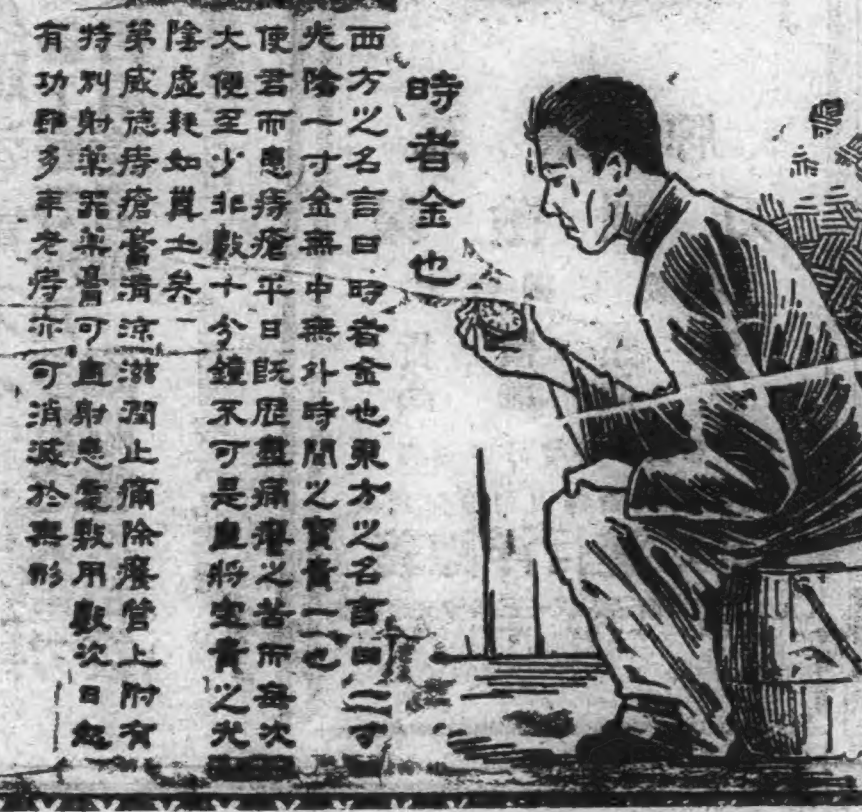 時者金也
西方之名言曰時者金也東方之名言曰一寸
光陰一寸金無中無外時間之寶貴一也
使君而患痔瘡平日既歷盡痛癢之苦而每次
大便至少非數十分鐘不可是直將宝貴之光
陰虛耗如糞土矣
第威德痔瘡膏清涼滋潤止痛除癢管上附有
特別射藥器藥膏可直射患處敷用數次日起
有功即多年老痔亦可消滅於無形